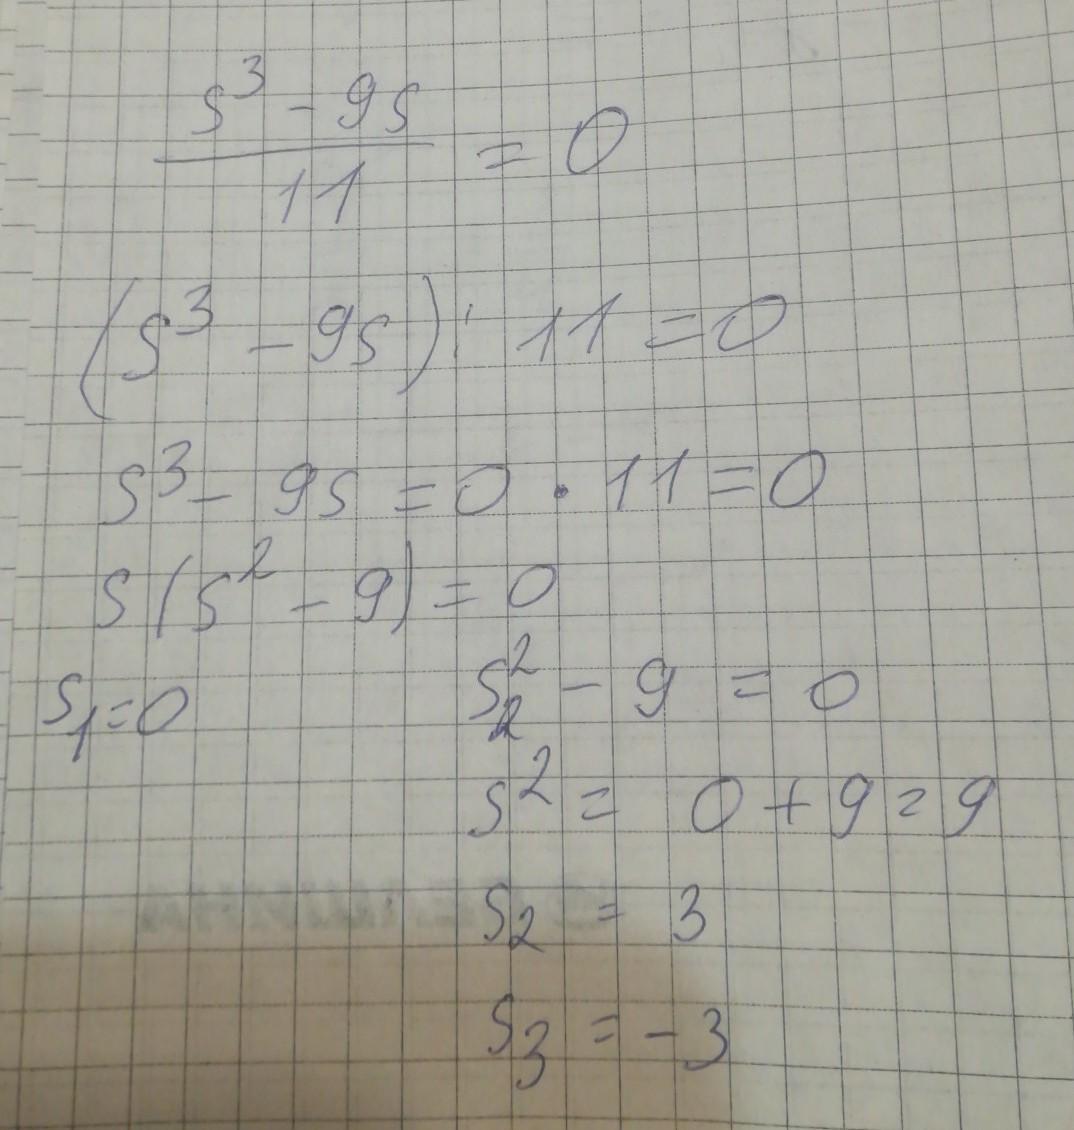 s³ - 9s
11
= 0
(s³ - 9s) : 11 = 0
s³ - 9s = 0 · 11 = 0
s(s² - 9) = 0
s₁ = 0
s₂² - 9 = 0
s² = 0 + 9 = 9
s₂ = 3
s₃ = -3